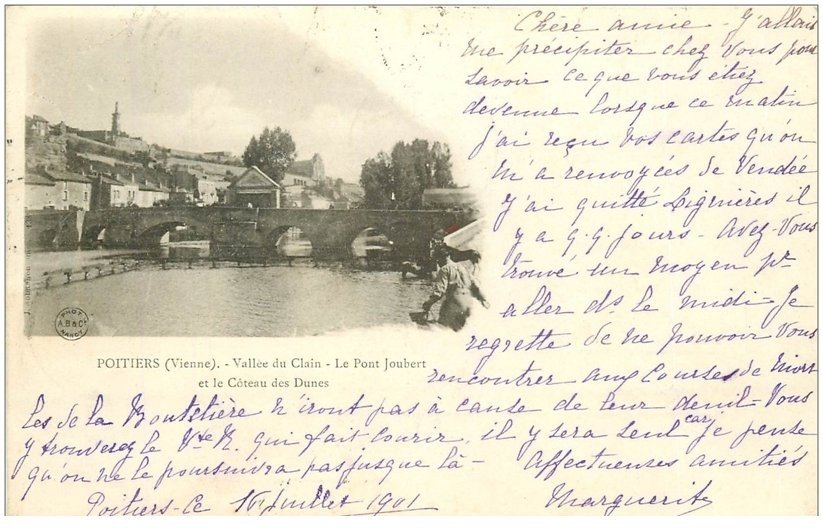 Chère amie - J'allais
me précipiter chez vous pour
savoir ce que vous étiez
devenue lorsque ce matin
j'ai reçu vos cartes qu'on
m'a renvoyées de Vendée
J'ai quitté Lignières il
y a q.q. jours - Avez-vous
trouvé un moyen pr
aller ds le midi Je
regrette de ne pouvoir vous
rencontrer aux Courses de Niort
PHOT
A.B & Cie
NANCY
POITIERS (Vienne). - Vallée du Clain - Le Pont Joubert
et le Côteau des Dunes
les de la Boutetière n'iront pas à cause de leur deuil - Vous
y trouverez le Vte R. qui fait courir, il y sera seul car je pense
qu'on ne le poursuivra pas jusque là - Affectueuses amitiés
Poitiers - Ce 16 Juillet 1901
Marguerite